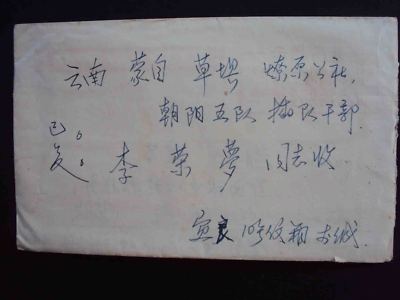 云南 蒙自 草坝 燎原公社,
朝阳五队 插队干部
已复。
李荣梦 同志收
宜良 10号信箱